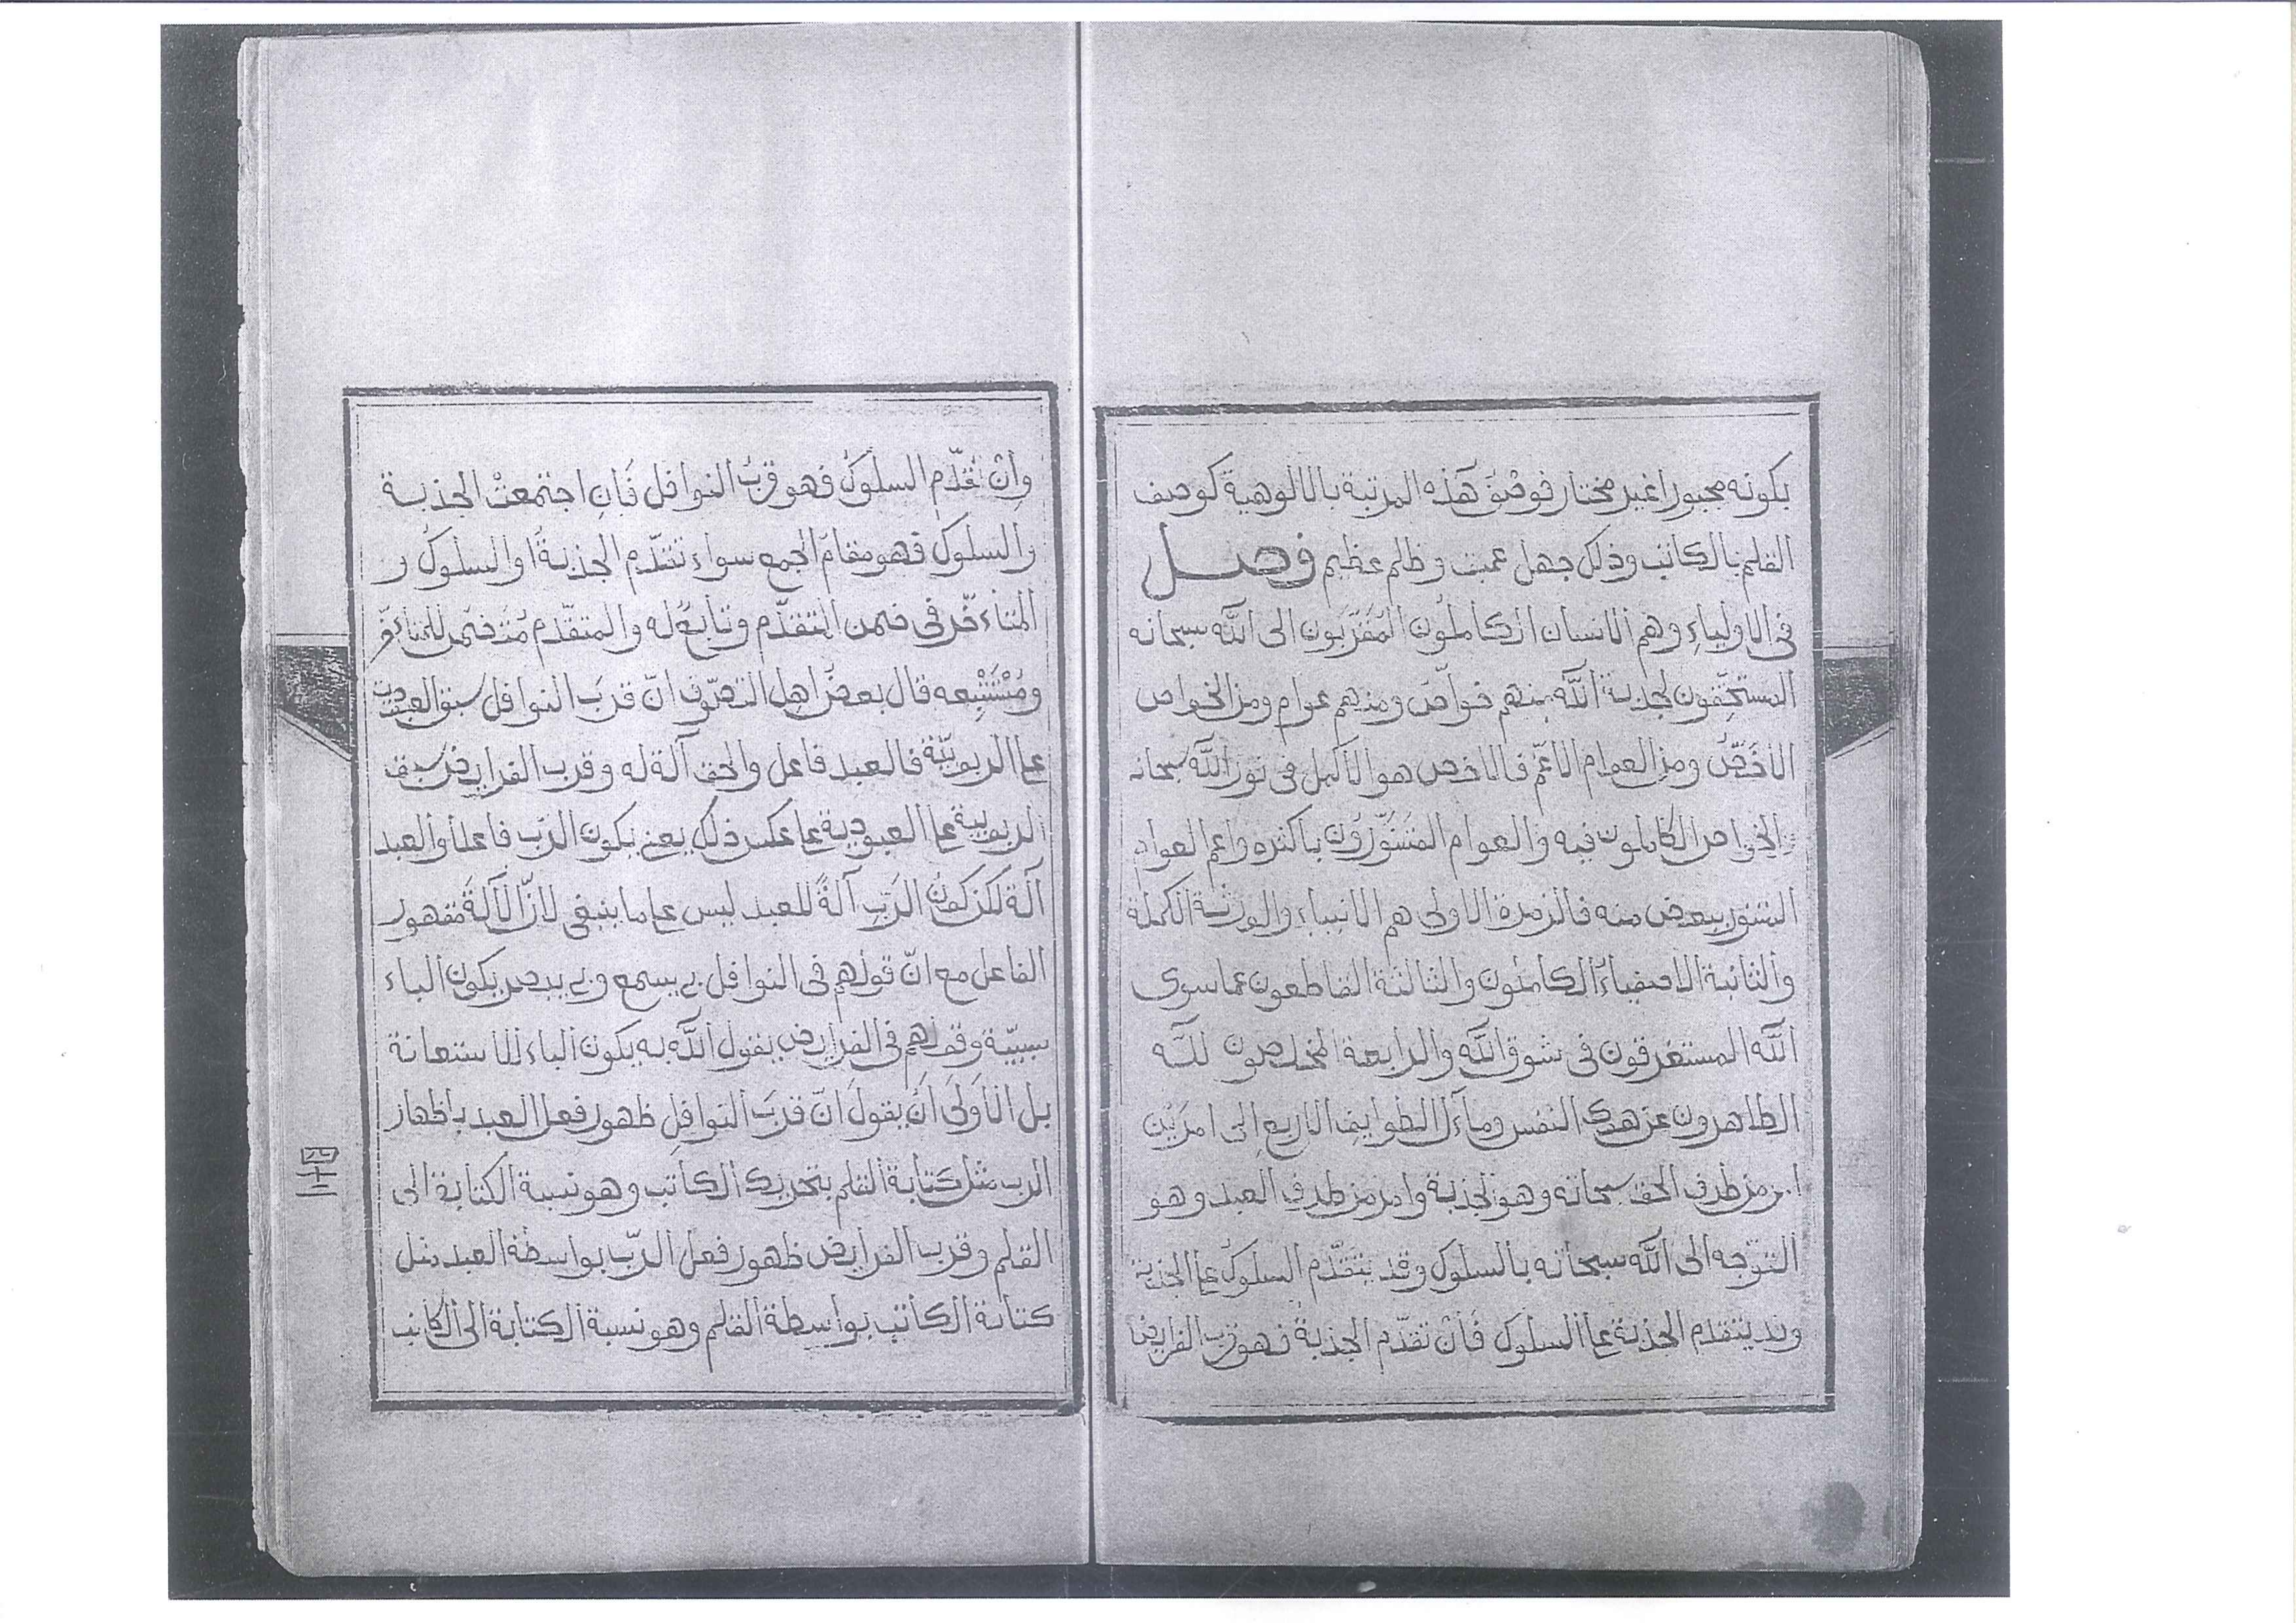 بكونه مجبورا غير مختار فوصف هذه المرتبة بالالوهية كوصف
القلم بالكاتب وذلك جهل عميق وظلم عظيم فصل
فى الاولياء وهم الانسان الكاملون المقربون الى الله سبحانه
المستحقون لجذبة الله منهم خواص ومنهم عوام ومن الخواص
الاخص ومن العوام الاعم فالاخص هو الاكمل فى نور الله سبحانه
والخواص الكاملون فيه والعوام المتنورون باكثره واعم العوام
المتنور ببعض منه فالزمرة الاولى هم الانبياء والورثة الكملة
والثانية الاصفياء الكاملون والثالثة القاطعون عما سوى
الله المستغرقون فى شوق الله والرابعة المخلصون لله
الطاهرون عن هوى النفس ومآل الطوايف الاربع الى امرين
امر من طرف الحق سبحانه وهو الجذبة وامر من طرف العبد وهو
التوجه الى الله سبحانه بالسلوك وقد يتقدم السلوك على الجذبة
وقد يتقدم الجذبة على السلوك فان تقدم الجذبة فهو قرب الفرايض
وان تقدّم السلوك فهو قرب النوافل فان اجتمعت الجذبة
والسلوك فهو مقام الجمع سواء تقدّم الجذبة او السلوك و
المتاءخّر فى ضمن المتقدّم وتابع له والمتقدّم متضمن للمتاءخّر
ومستتبعه قال بعض اهل التصوّف انّ قرب النوافل سبق العبودية
على الربوبيّة فالعبد فاعل والحق آلة له وقرب الفرايض سبق
الربوبية على العبودية على عكس ذلك يعنى يكون الرّب فاعلا والعبد
آلة لكن كون الرّب آلة للعبد ليس على ما ينبغى لانّ الآلة مقهور
الفاعل مع انّ قولهم فى النوافل بى يسمع وبى يبصر يكون الباء
سببيّة وقولهم فى الفرايض يقول الله به يكون الباء للاستعانة
بل الاولى ان يقول انّ قرب النوافل ظهور فعل العبد باظهار
الرب مثل كتابة القلم بتحريك الكاتب وهو نسبة الكتابة الى
القلم وقرب الفرايض ظهور فعل الرّب بواسطة العبد مثل
كتابة الكاتب بواسطة القلم وهو نسبة الكتابة الى الكاتب
四十二